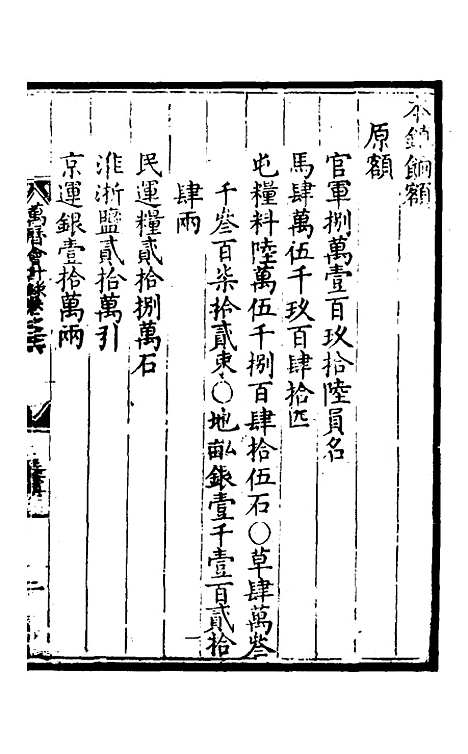 本鎮餉額
原額
官軍捌萬壹百玖拾陸員名
馬肆萬伍千玖百肆拾匹
屯糧料陸萬伍千捌百肆拾伍石〇草肆萬叁
千叁百柒拾貳束〇地畝銀壹千壹百貳拾
肆兩
民運糧貳拾捌萬石
淮浙鹽貳拾萬引
京運銀壹拾萬兩
萬曆會計錄卷之